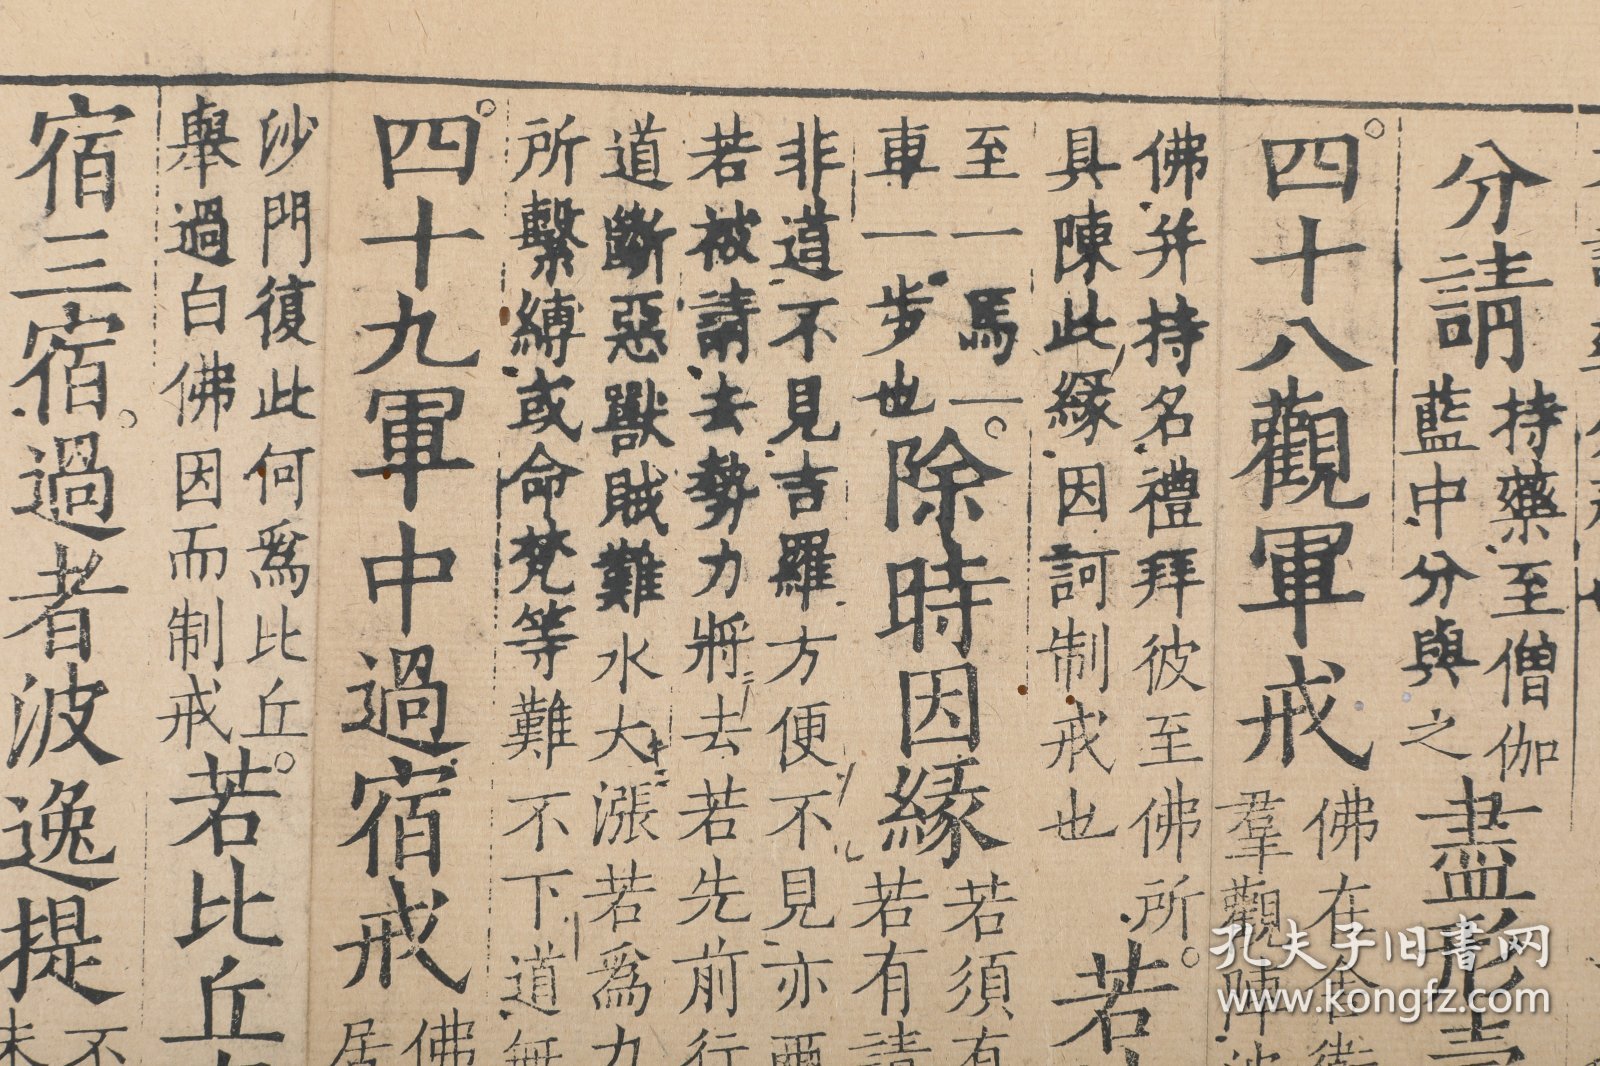 分請
持藥至僧伽
藍中分與之
盡形壽
四十八觀軍戒
佛在舍衛
羣觀陣彼
佛并持名禮拜彼至佛所
具陳此緣因訶制戒也
若
至一馬一
車一步也
除時因緣
若須有
若有請
非道不見吉羅方便不見亦爾
若被請去勢力將去若先前行
道斷惡獸賊難水大漲若爲力
所繫縛或命梵等難不下道無
四十九軍中過宿戒
佛
居
沙門復此何爲比丘
舉過白佛因而制戒
若比丘
宿三宿過者波逸提
不
未
孔夫子旧书网
www.kongfz.com